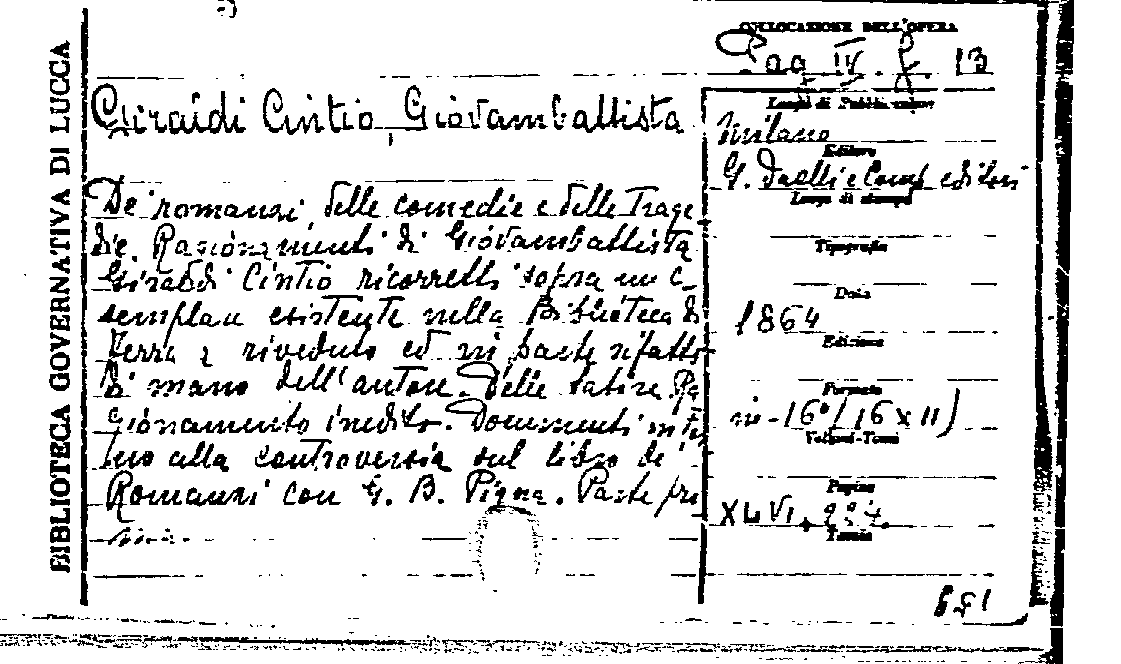 BIBLIOTECA GOVERNATIVA DI LUCCA
COLLOCAZIONE DELL'OPERA
Pag IV. f. 13
Giraldi Cintio, Giovambattista
De' romanzi delle comedie e delle Trage
die. Ragionamenti di Giovambattista
Giraldi Cintio ricorretti sopra un e-
semplare esistente nella Biblioteca di
Ferrara riveduto ed in parte rifatto
di mano dell'autore. Delle satire Ra
gionamento inedito. Documenti intor
no alla controversia sul libro de'
Romanzi con G. B. Pigna. Parte pri
ma.
Luogo di Pubblicazione
Milano
Editore
G. Daelli e Comp. editori
Luogo di stampa
Tipografia
Data
1864
Edizione
Formato
in-16° (16 x 11)
Volumi-Tomi
Pagine
XLVI,
Tavole